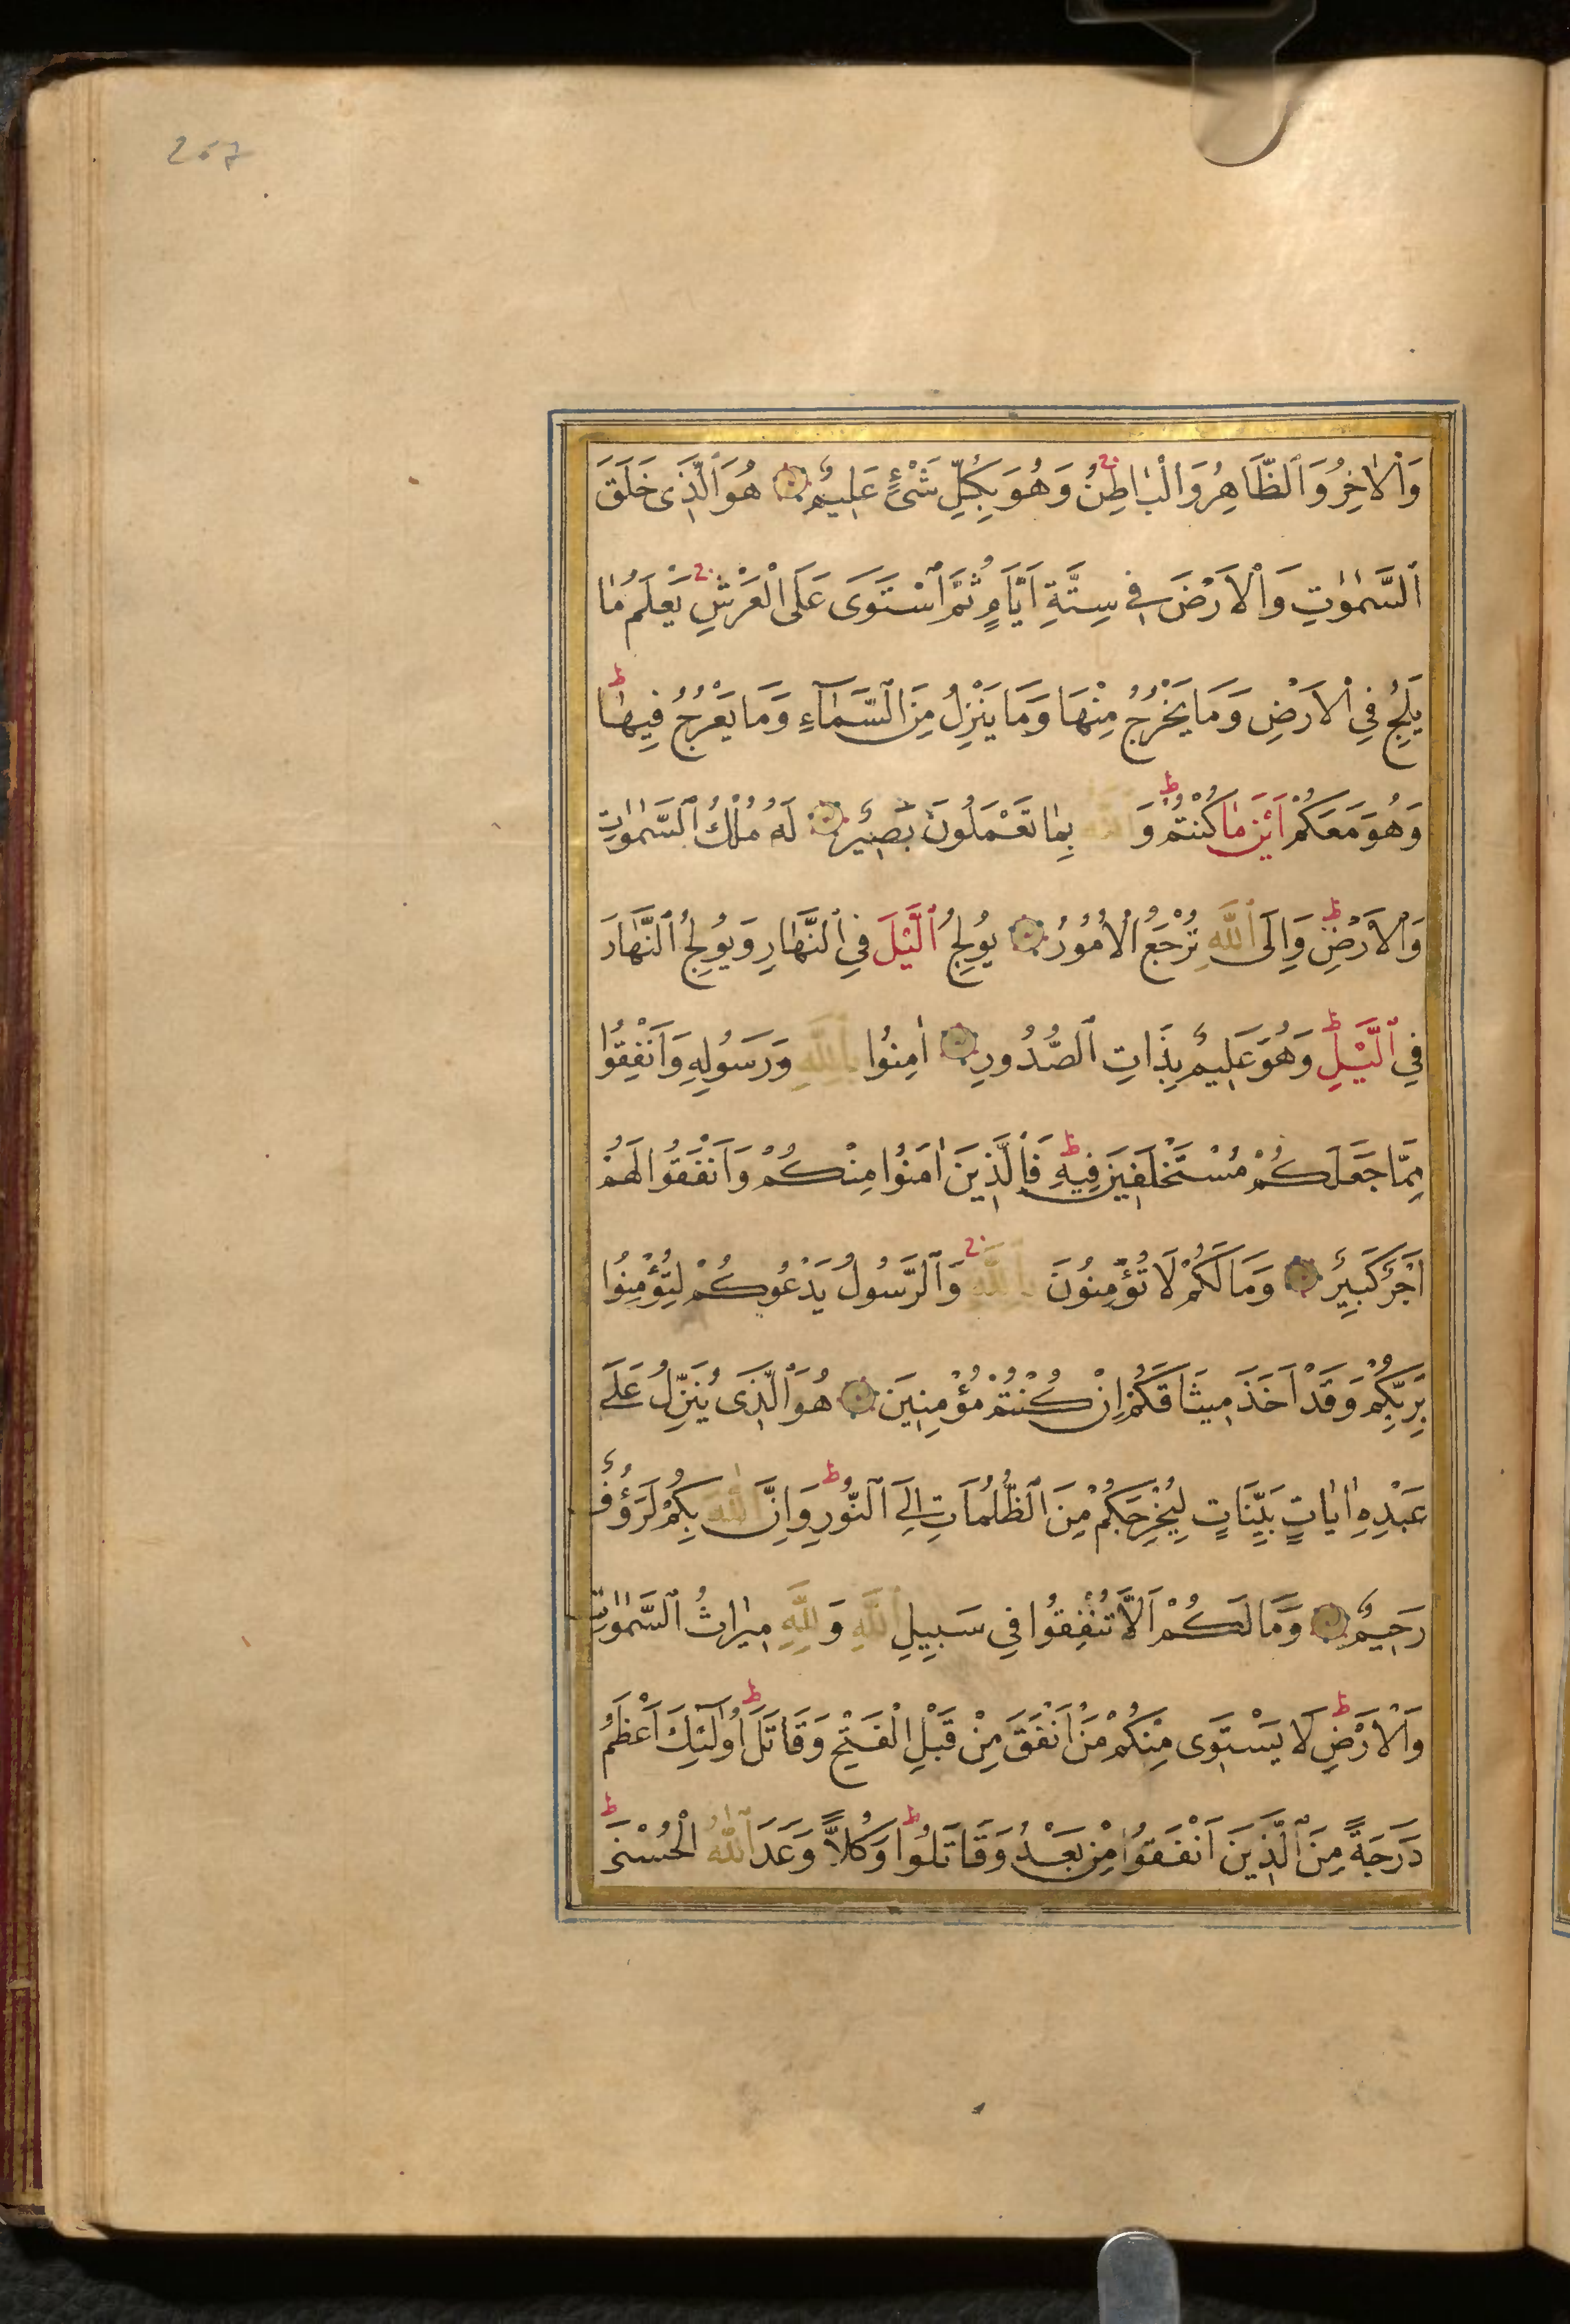 267
وَالْاٰخِرُ وَالظَّاهِرُ وَالْبَاطِنُ ج وَهُوَ بِكُلِّ شَيْءٍ عَلِيمٌ هُوَ الَّذِى خَلَقَ
السَّمٰوٰتِ وَالْاَرْضَ فِى سِتَّةِ اَيَّامٍ ثُمَّ اسْتَوٰى عَلَى الْعَرْشِ ج يَعْلَمُ مَا
يَلِجُ فِي الْاَرْضِ وَمَا يَخْرُجُ مِنْهَا وَمَا يَنْزِلُ مِنَ السَّمَاءِ وَمَا يَعْرُجُ فِيهَا ط
وَهُوَ مَعَكُمْ اَيْنَ مَا كُنْتُمْ ط وَاللّٰهُ بِمَا تَعْمَلُونَ بَصِيرٌ لَهُ مُلْكُ السَّمٰوٰتِ
وَالْاَرْضِ ط وَاِلَى اللّٰهِ تُرْجَعُ الْاُمُورُ يُولِجُ الَّيْلَ فِي النَّهَارِ وَيُولِجُ النَّهَارَ
فِي الَّيْلِ ط وَهُوَ عَلِيمٌ بِذَاتِ الصُّدُورِ اٰمِنُوا بِاللّٰهِ وَرَسُولِهِ وَاَنْفِقُوا
مِمَّا جَعَلَكُمْ مُسْتَخْلَفِينَ فِيهِ ط فَالَّذِينَ اٰمَنُوا مِنْكُمْ وَاَنْفَقُوا لَهُمْ
اَجْرٌ كَبِيرٌ وَمَا لَكُمْ لَا تُؤْمِنُونَ بِاللّٰهِ ج وَالرَّسُولُ يَدْعُوكُمْ لِتُؤْمِنُوا
بِرَبِّكُمْ وَقَدْ اَخَذَ مِيثَاقَكُمْ اِنْ كُنْتُمْ مُؤْمِنِينَ هُوَ الَّذِى يُنَزِّلُ عَلٰى
عَبْدِهِ اٰيَاتٍ بَيِّنَاتٍ لِيُخْرِجَكُمْ مِنَ الظُّلُمَاتِ اِلَى النُّورِ ط وَاِنَّ اللّٰهَ بِكُمْ لَرَؤُفٌ
رَحِيمٌ وَمَا لَكُمْ اَلَّا تُنْفِقُوا فِي سَبِيلِ اللّٰهِ وَلِلّٰهِ مِيرَاثُ السَّمٰوٰتِ
وَالْاَرْضِ ط لَا يَسْتَوِى مِنْكُمْ مَنْ اَنْفَقَ مِنْ قَبْلِ الْفَتْحِ وَقَاتَلَ ط اُولٰئِكَ اَعْظَمُ
دَرَجَةً مِنَ الَّذِينَ اَنْفَقُوا مِنْ بَعْدُ وَقَاتَلُوا ط وَكُلًّا وَعَدَ اللّٰهُ الْحُسْنٰى ط